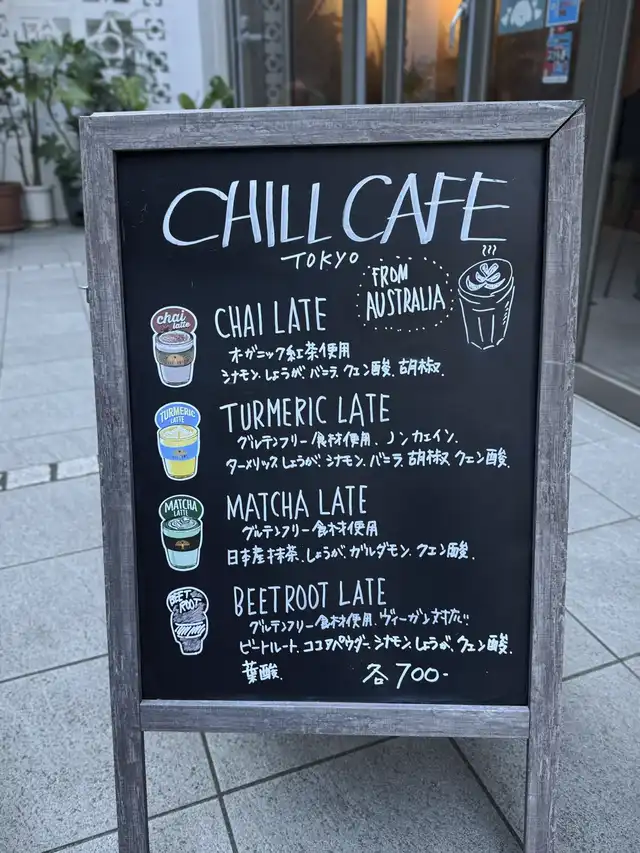 CHILL CAFE
TOKYO
FROM
AUSTRALIA
chai
latte
CHAI LATE
オーガニック紅茶使用
シナモン、しょうが、バニラ、クエン酸、胡椒、
TURMERIC
LATTE
TURMERIC LATE
グルテンフリー食材使用、ノンカェイン、
ターメリック、しょうが、シナモン、バニラ、胡椒、クエン酸、
MATCHA
LATTE
MATCHA LATE
グルテンフリー食材使用
日本産抹茶、しょうが、カルダモン、クエン酸、
BEET
ROOT
BEETROOT LATE
グルテンフリー食材使用、ヴィーガン対応!!
ビートルート、ココアパウダー、シナモン、しょうが、クエン酸、
葉酸、
各700-